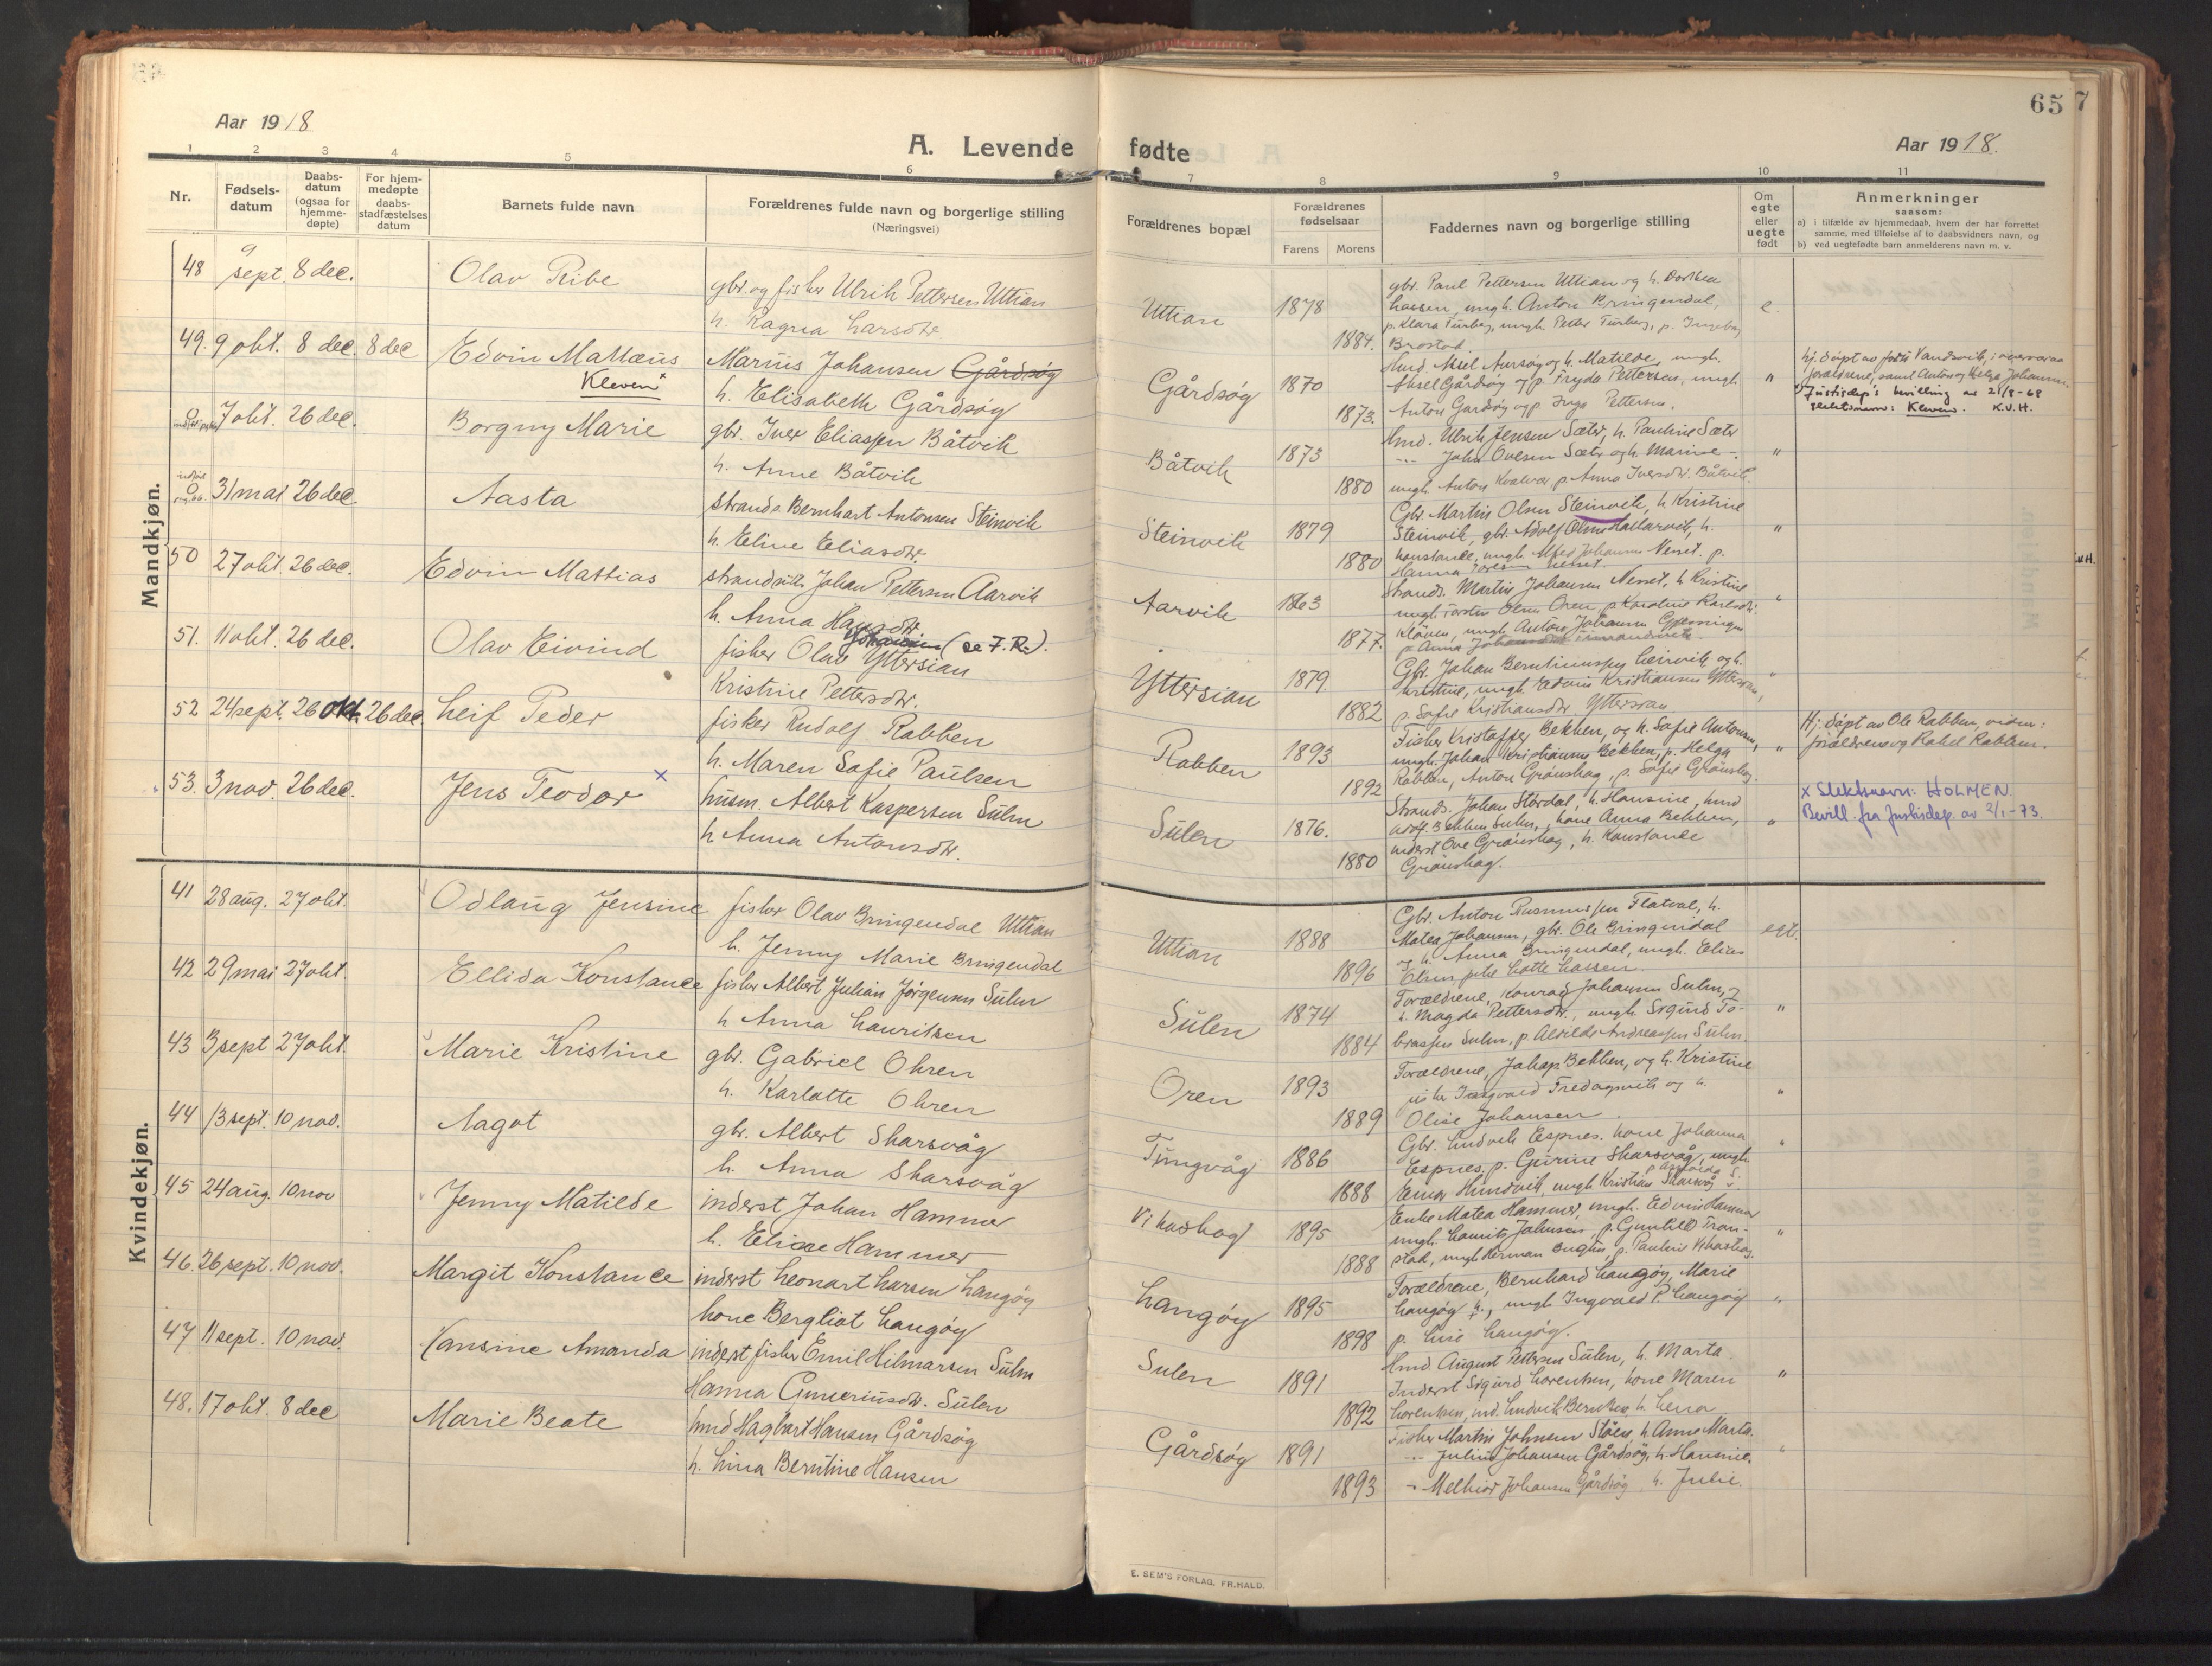 65
7
Aar 1918
A. Levende
fødte
Aar 1918.
1 2 3 4 5 6 7 8 9 10 11
Nr.
Fødsels-
datum
Daabs-
datum
(ogsaa for
hjemme-
døpte)
For hjem-
medøpte
daabs-
stadfæstelses
datum
Barnets fulde navn
Forældrenes fulde navn og borgerlige stilling
(Næringsvei)
Forældrenes bopæl
Forældrenes
fødselsaar
Farens Morens
Faddernes navn og borgerlige stilling
Om
egte
eller
uegte
født
Anmerkninger
saasom:
a) i tilfælde av hjemmedaab, hvem der har forrettet
samme, med tilføielse af to daabsvidners navn, og
b) ved uegtefødte barn anmelderens navn m. v.
Mandkjøn.
48 9 sept. 8 dec. Olav Ribe
gbr. og fisker Ulrik Pettersen Uttian
h. Ragna Larsdtr
Uttian 1878 1884. e.
gbr. Paul Pettersen Uttian og h. Dorthea
Lassen, ungk. Anton Bringendal,
p. Klara Turberg, ungk. Petter Turberg, p. Ingeborg
Brostad.
49. 9 okt. 8 dec. 8 dec Edvin Mattæus
Kleven x
Marius Johansen Gårdsøg
h. Elisabeth Gårdsøy
Gårdsøy 1870 1873. "
Hmd. Aksel Aursøy og h. Matilde, ungk.
Aksel Gårdsøy og p. Fryda Pettersen, ungk.
Anton Gardsøy og p. Inga Pettersen.
hj. døpt av Vandsvik, i overvær av
forældrene, samt Anton og Helga Johansen.
x Justisdep's bevilling av 21/8-68
slektsnavn: Kleven. K.V.H.
0 7 okt. 26 dec. Borgny Marie
gbr. Iver Eliassen Båtvik
h. Anne Båtvik
Båtvik 1873 1880 "
Hmd. Ulrik Jensen Sæter, h. Pauline Sæter
-"- John Ovesen Sæter og h. Marise -.
ungk. Anton Kvalvær p. Anna Iversdtr. Båtvik.
0 31 mai 26 dec Aasta
strands. Bernhart Antonsen Steinvik
h. Eline Eliasdtr.
Steinvik 1879 1880 "
Gbr. Martin Olsen Steinvik, h. Kristine
Steinvik, gbr. Adolf Olsen Hallarvik, h.
Konstance, ungk. Alfred Johansen Nesset. p.
Hanna Nesset.
50 27 okt. 26 dec. Edvin Mattias
strandsidr. Johan Pettersen Aarvik
h. Anna Hansdtr
Aarvik 1863 1877. "
Strands. Martin Johansen Nesset, h Kristine
ungk. Torstin Olsen Oren, p. Karoline Karlsdtr.
Kløven, ungk. Anton Johansen Gjæssingen
p. Anna
51. 11 okt. 26 dec. Olav Eivind
(se F.R.).
fisker Olav Yttersian
Kristine Pettersdtr.
Yttersian 1879 1882 "
Gbr. Johan Berntinussen Leirvik og h.
Kristine, ungk. Edvin Kristiansen Yttersian,
p. Sofie Kristiansdtr Yttersian
52 24 sept. 26 okt. 26 dec. Leif Peder
fisker Rudolf Rabben
h. Maren Sofie Paulsen
Rabben 1893 1892 "
Fisker Kristoffer Bekken, og h. Sofie Antonsen,
ungk. Johan Kristiansen Bekken, p. Helga
Rabben, Anton Grønskag, p. Sofie Grønskag.
Hj. døpt av Ole Rabben, vidner:
forældrene og Rakel Rabben.
53. 3 nov. 26 dec. Jens Teodor x
husm. Albert Kaspersen Sulen
h Anna Antonsdtr.
Sulen 1876. 1880 "
Strands. Johan Stordal, h. Hansine, hmd
Adolf Bekken Sulen, kone Anna Bekken,
inderst Ove Grønskag, h. Konstance
Grønskag.
x Slektsnavn: HOLMEN.
Bevill. fra Justisdep. av 2/1-73.
Kvindekjøn.
41 28 aug. 27 okt. Odlaug Jensine
fisker Olav Bringendal Uttian
h. Jenny Marie Bringendal
Uttian 1888 1896 egt.
Gbr. Anton Rasmussen Flatval, h.
Matea Johansen, gbr. Ole Bringendal
og h. Anna Bringendal, ungk. Elias
Olsen, pike Lotte Lassen.
42 29 mai 27 okt. Ellida Konstance
fisker Albert Julian Jørgensen Sulen
h Anna Lauritsen
Sulen 1874 1884 "
Forældrene, Konrad Johansen Sulen, og
h. Magda Pettersdtr., ungk. Sigurd To-
biassen Sulen, p. Alvilde Andreassen Sulen.
43 3 sept 27 okt. Marie Kristine
gbr. Gabriel Ohren
h. Karlotte Ohren
Oren 1893 1889 "
Forældrene, Johan Bekken, og h. Kristine
fisker Ingvald Fredagsvik og h.
Olise Johansen.
44 13 sept. 10 nov. Aagot
gbr. Albert Skarsvåg
h. Anna Skarsvåg
Tungvåg 1886 1888 "
Gbr. Ludvik Espnes. kone Johanna
Espnes, p. Gurine Skarsvåg, ungk.
Einar Hundvik, ungk. Kristian Skarsvåg
45 24 aug. 10 nov Jenny Matilde
inderst Johan Hammer
h. Elise Hammer
Vikashag 1895 1888 "
Enke Matea Hammer, ungk. Edvin Hammer
ungk. Lauritz Johnsen, p. Gunhild Tran-
stad, ungk Herman Bughn, p. Pauline Vikashag.
46. 26 sept. 10 nov. Margit Konstance
inderst Leonart Larsen Langøy
kone Bergliot Langøy
Langøy 1895 1898 "
Forældrene, Bernhard Langøy, Marie
Langøy h., ungk Ingvald P. Langøy
p. Lise Langøy.
47 11 sept. 10 nov. Hansine Amanda
inderst fisker Emil Hilmarsen Sulen
Hanna Gunneriusdtr. Sulen
Sulen 1891 1892 "
Hmd. August Pettersen Sulen, h. Marta.
Inderst Sigurd Lorentsen, kone Maren
Lorentsen, ind. Ludvik Berntsen h. Lena.
48. 17 okt. 8 dec Marie Beate
hmd Hagbart Hansen Gårdsøy
h. Lina Berntine Hansen
Gårdsøy 1891 1893 "
Fisker Martin Johnsen Støen, h. Anne Marta.
-"- Julius Johansen Gårdsøy, h. Hansine.
-"- Melkior Johansen Gårdsøy, h. Julie.
E. SEM'S FORLAG, FR.HALD.